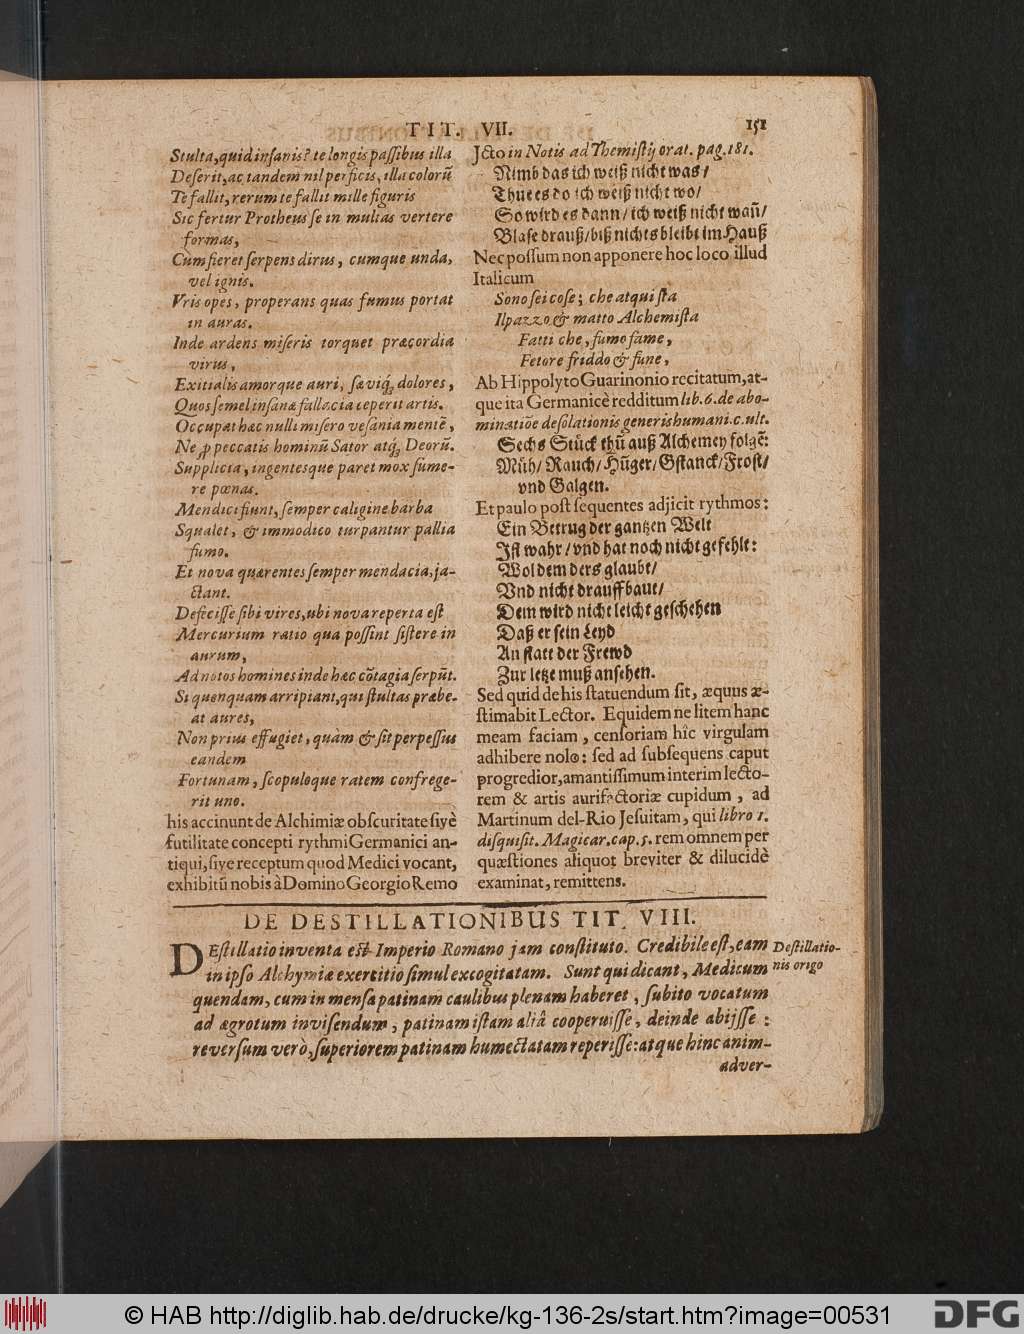 TIT. VII. 151
Stulta, quid insanis? te longis passibus illa
Deserit, ac tandem nil perficis, illa colorũ
Te fallit, rerum te fallit mille figuris
Sic fertur Protheus se in multas vertere
formas,
Cùm fieret serpens dirus, cumque unda,
vel ignis.
Vris opes, properans quas fumus portat
in auras.
Inde ardens miseris torquet præcordia
virus,
Exitialis amorque auri, sæviq́; dolores,
Quos semel insanæ fallacia ceperit artis.
Occupat hæc nulli misero vesania mentẽ,
Ne ꝓ peccatis hominũ Sator atq́; Deorũ.
Supplicia, ingentesque paret mox sume-
re pœnas.
Mendici fiunt, semper caligine barba
Squalet, & immodico turpantur pallia
fumo.
Et nova quærentes semper mendacia, ja-
ctant.
Defecisse sibi vires, ubi nova reperta est
Mercurium ratio qua possint sistere in
aurum,
Ad notos homines inde hæc cõtagia serpũt.
Si quenquam arripiant, qui stultas præbe-
at aures,
Non prius effugiet, quàm & sit perpessus
eandem
Fortunam, scopuloque ratem confrege-
rit uno.
his accinunt de Alchimiæ obscuritate sivè
futilitate concepti rythmi Germanici an-
tiqui, sive receptum quod Medici vocant,
exhibitũ nobis à Domino Georgio Remo
Jcto in Notis ad Themistij orat. pag. 181.
Nimb das ich weiß nicht was/
Thue es do ich weiß nicht wo/
So wird es dann/ ich weiß nicht wañ/
Blase drauß/ biß nichts bleibt im Hauß
Nec possum non apponere hoc loco illud
Italicum
Sono sei cose; che atquista
Il pazzo & matto Alchemista
Fatti che, fumo fame,
Fetore friddo & fune,
Ab Hippolyto Guarinonio recitatum, at-
que ita Germanicè redditum lib. 6. de abo-
minatiõe desolationis generis humani. c. ult.
Sechs Stück thũ auß Alchemey folgẽ:
Müh/ Rauch/ Hũger/ Gstanck/ Frost/
vnd Galgen.
Et paulo post sequentes adjicit rythmos:
Ein Betrug der gantzen Welt
Ist wahr/ vnd hat noch nicht gefehlt:
Wol dem ders glaubt/
Vnd nicht drauff baut/
Dem wird nicht leicht geschehen
Daß er sein Leyd
An statt der Frewd
Zur letze muß ansehen.
Sed quid de his statuendum sit, æquus æ-
stimabit Lector. Equidem ne litem hanc
meam faciam, censoriam hîc virgulam
adhibere nolo: sed ad subsequens caput
progredior, amantissimum interim lecto-
rem & artis aurifactoriæ cupidum, ad
Martinum del-Rio Jesuitam, qui libro 1.
disquisit. Magicar. cap. 5. rem omnem per
quæstiones aliquot breviter & dilucidè
examinat, remittens.
DE DESTILLATIONIBUS TIT. VIII.
DEstillatio inventa est Imperio Romano jam constituto. Credibile est, eam
in ipso Alchymiæ exercitio simul excogitatam. Sunt qui dicant, Medicum
quendam, cum in mensa patinam caulibus plenam haberet, subito vocatum
ad ægrotum invisendum, patinam istam aliâ cooperuisse, deinde abijsse:
reversum verò, superiorem patinam humectatam reperisse: atque hinc anim-
adver-
Destillatio-
nis origo
© HAB http://diglib.hab.de/drucke/kg-136-2s/start.htm?image=00531
DFG